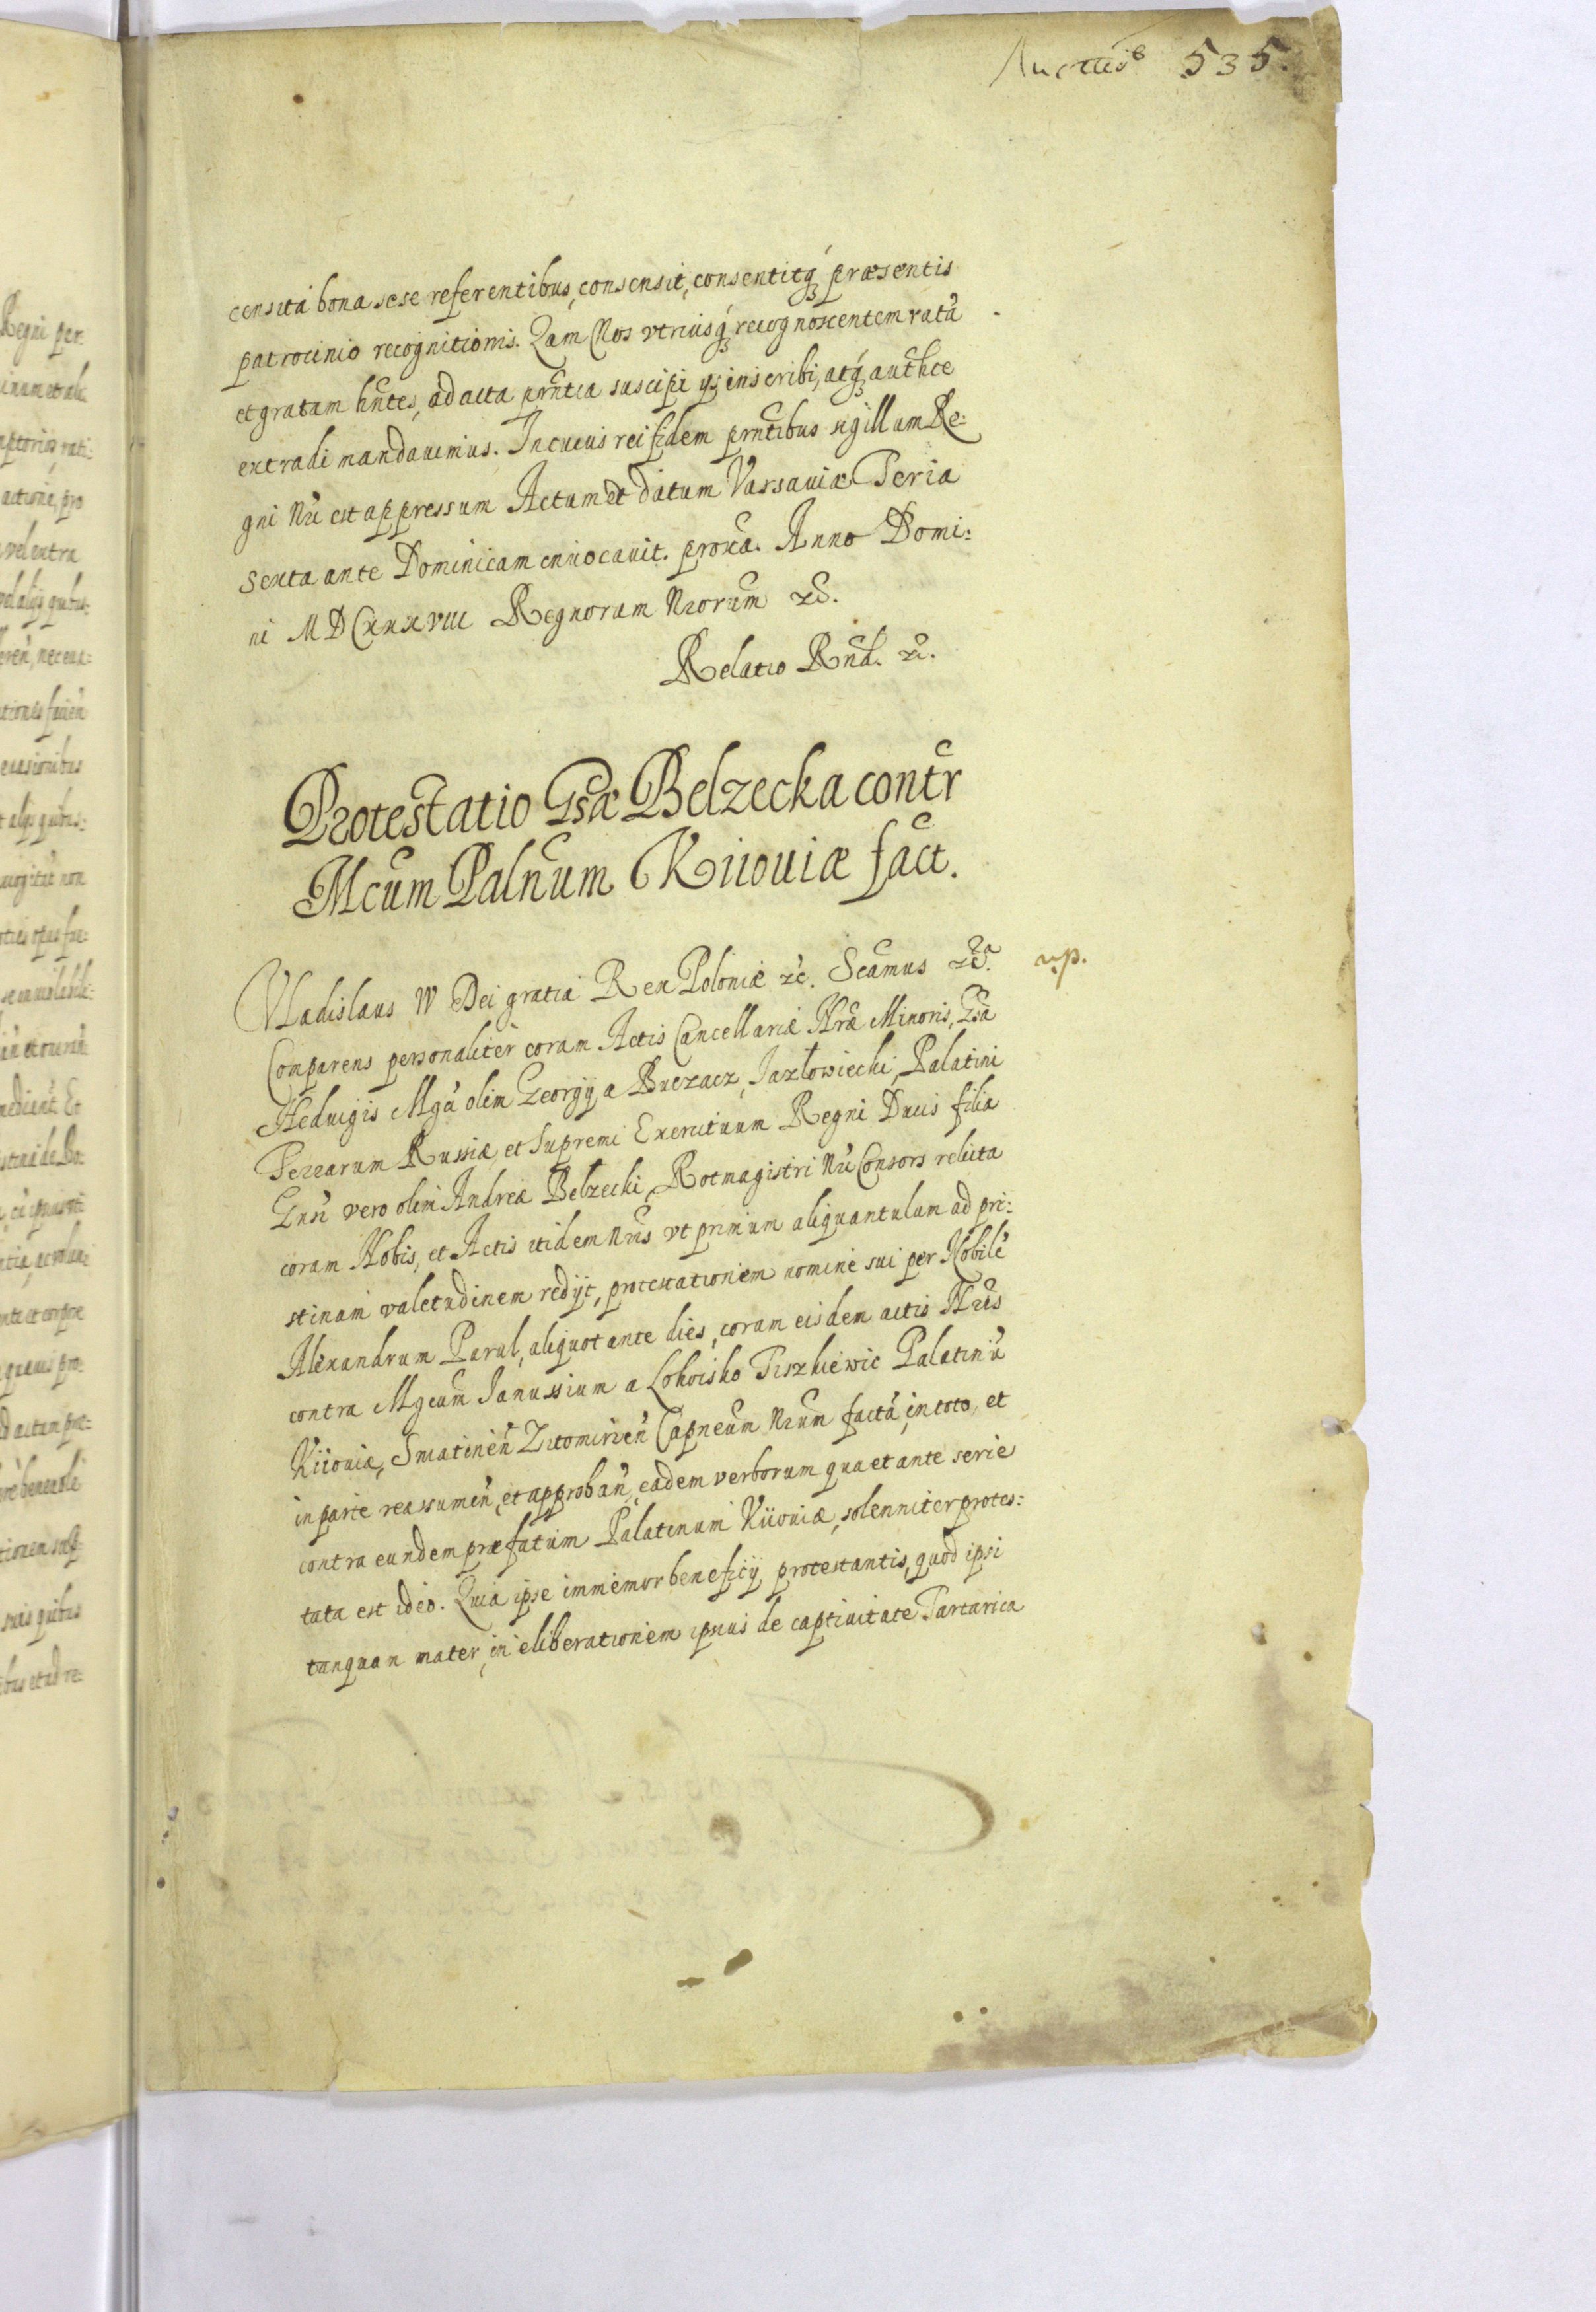 535.
censita bona sese referentibus, consensit, consentitq₃ præsentis
patrocinio recognitionis. Qam Nos vtriusq₃ recognoscentem ratã
et gratam hñtes, ad acta prñtia suscipi ijs inscribi, atq₃ authce
extradi mandauimus. In cuius rei fidem prñtibus sigillum Re:
gni Nri est appressum Actum et datum Varsauiæ Feria
sexta ante Dominicam Inuocauit. proxa. Anno Domi:
ni MDCXXXVIII Regnorum Nrorum &c.
Relatio Rnd. &.
Protestatio Gsæ Belzecka contr
Mcum Palnum Kiiouiæ fact.
Vladislaus IV Dei gratia Rex Poloniæ &c. Scamus &c.
Comparens personaliter coram Actis Cancellariæ Nræ Minoris, Gsa
Heduigis Mgci olim Georgij a Buczacz, Jazłowiecki, Palatini
Terrarum Russiæ, et Supremi Exercituum Regni Ducis filia
Gnsi vero olim Andreæ Bełzecki, Rotmagistri Nri Consors relicta
coram Nobis, et Actis itidem Nris vt primum aliquantulum ad pri:
stinam valetudinem redijt, protestationem nomine sui per Nobilẽ
Alexandrum Parul, aliquot ante dies, coram eisdem actis Nris
contra Mgcum Janussium a Lohoisko Tiszkiewic Palatinũ
Kiiouiæ, Sniatineñ Zitomirieñ Capneum Nrum factã, in toto, et
in parte reassumeñ, et approbañ, eadem verborum qua et ante serie
contra eundem præfatum Palatinum Kiiouiæ, solenniter protes:
tata est ideo. Quia ipse immemor beneficij protestantis, quod ipsi
tanquan mater, in eliberationem ipsius de captiuitate Tartarica